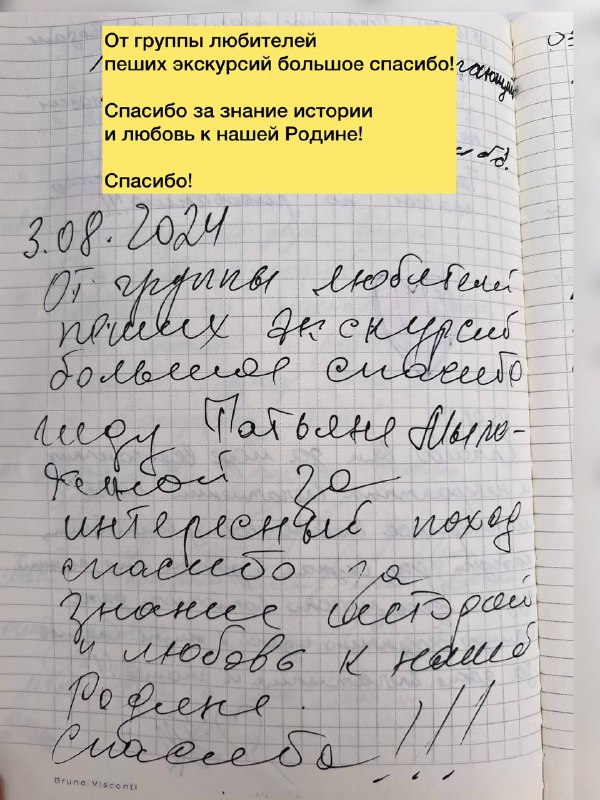 От группы любителей
пеших экскурсий большое спасибо!
Спасибо за знание истории
и любовь к нашей Родине!
Спасибо!
3.08.2024
От группы любителей
пеших экскурсий
большое спасибо
гиду Татьяне
за
интересный поход
спасибо за
знание историй
и любовь к нашей
Родине.
Спасибо!!!
Bruno Visconti